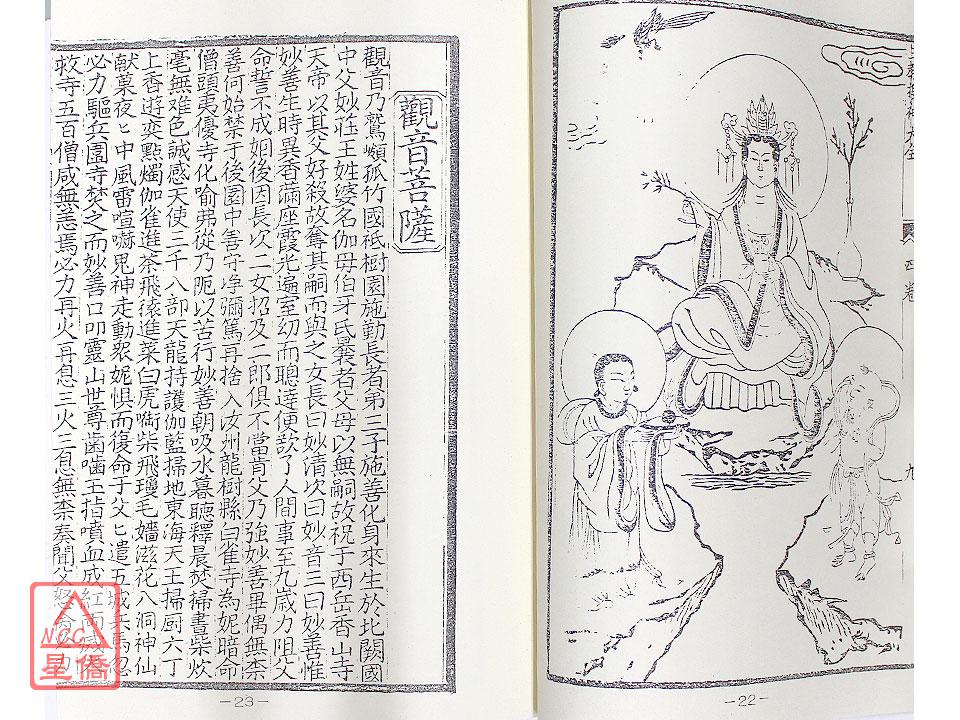 卷
九
—22—
觀音菩薩
觀音乃鷲嶺孤竹國祇樹園施勤長者第三子施善化身來生於北闕國
中父妙莊王姓婆名伽母伯牙氏曩者父母以無嗣故祝于西岳香山寺
天帝以其父好殺故奪其嗣而與之女長曰妙清次曰妙音三曰妙善惟
妙善生時異香滿座霞光遍室幼而聰達便欲了人間事至九歲力阻父
命誓不成姻後因長次二女招及二郎俱不當背父乃強妙善畢偶無柰
善何始禁于後園中善守淨彌篤再捨入汝州龍樹縣白雀寺為妮暗命
僧頭夷優寺化喻弗從乃阨以苦行妙善朝吸水暮聽釋晨焚掃晝柴炊
毫無难色誠感天使三千八部天龍持護伽藍掃地東海天王掃厨六丁
上香遊奕點燭伽雀進茶飛猿進菜白虎啣柴飛瓊毛嬙滋花八洞神仙
献菓夜ヒ中風雷喧嚇鬼神走動衆妮惧而復命于父ヒ遣五城兵馬忍
必力驅兵圍寺焚之而妙善口叩靈山世尊齒嚙玉指噴血成紅雨滅
救寺五百僧咸無恙焉必力再火再息三火三息無柰奏聞父怒
—23—
NCC
星僑